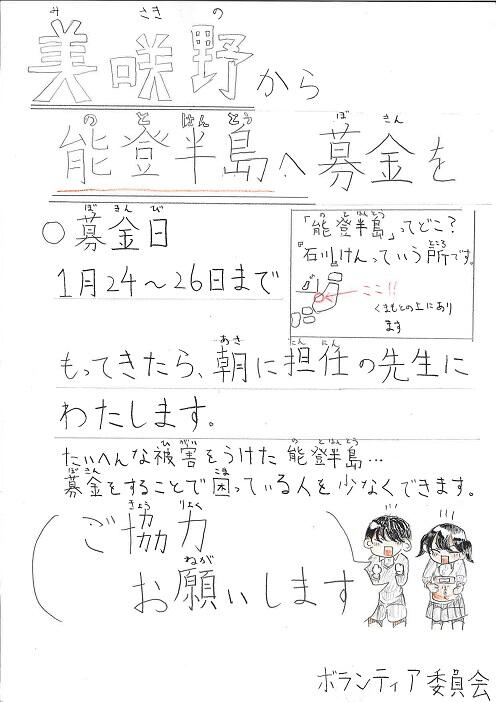 美咲野から
能登半島へ募金を
○募金日
1月24～26日まで
「能登半島」ってどこ？
石川けんっていう所です。
ここ!!
くまもとの上にあり
ます
もってきたら、朝に担任の先生に
わたします。
たいへんな被害をうけた能登半島…
募金をすることで困っている人を少なくできます。
ご協力
お願いします
ボランティア委員会